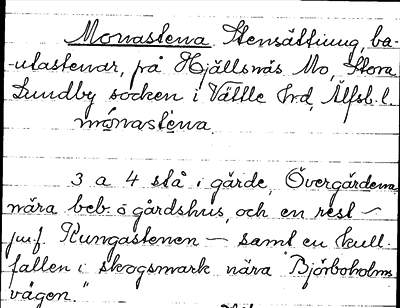 Monastena. Stensättning, ba-
-utastenar, på Hjällsnäs Mo, Stora
Lundby socken i Vättle hrd, Älfsb. l.
mónastèna.
3 a 4 stå i gärde, Övergärdena
nära beb. o gårdshus, och en rest -
jmf. Kungastenen - samt en kull-
fallen i skogsmark nära "Björboholms
vägen."